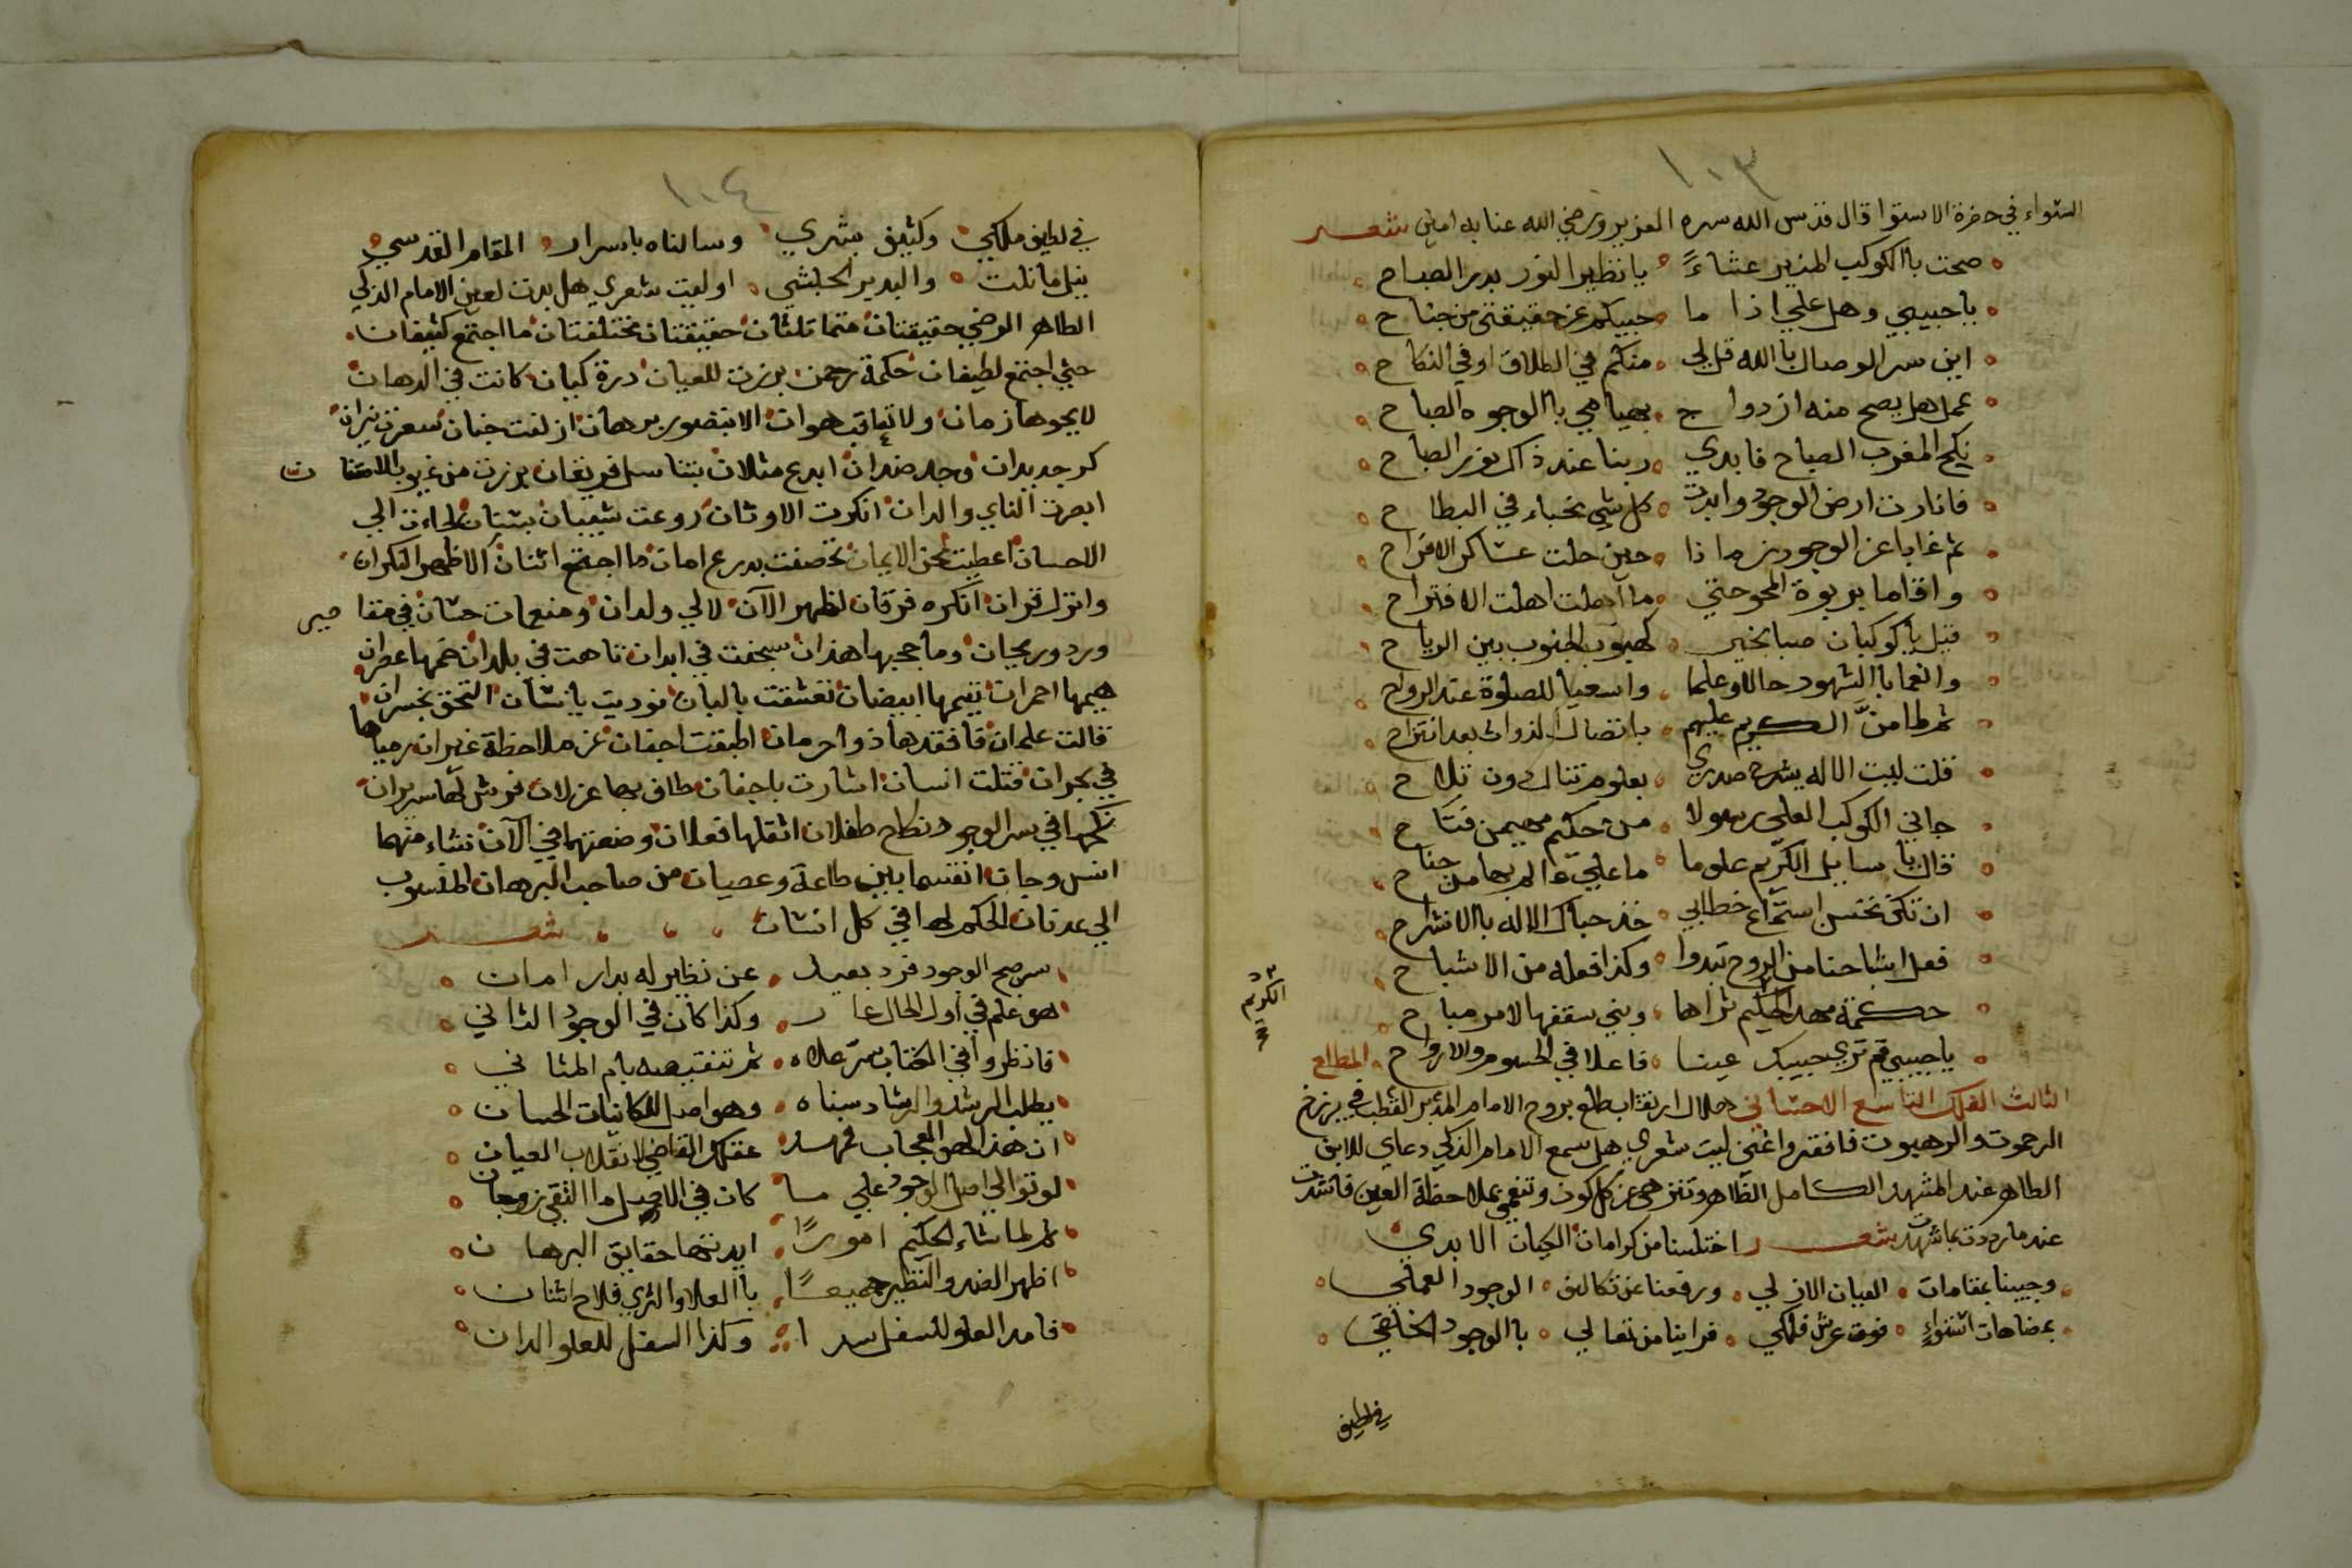 ١٠٣
السواء في حضرة الاستوا قال قدس الله سره العزيز ورضي الله عنا به امين شعر
صحت باالكوكب المنير عشاءً يا نظير النور بدر الصباح
يا حبيبي وهل علي اذا ما حبيبكم عن حقيقتي من جناح
اين سر الوصال باالله قل لي منكم في الطلاق او في النكاح
عمل هل يصح منه ازدواج بهيامي باالوجوه الصباح
نكح المغرب الصباح فابدي ربنا عند ذاك نور الصباح
فانارت ارض الوجود وابدت كل شي مخباء في البطاح
ثم غابا عن الوجود زمانا حين حلت عساكر الافراح
واقاما بربوة المحو حتي ما اهلت اهلت الافتراح
قيل يا كوكبان صبا بخير كهبوب الجنوب بين الرياح
وانعما باالشهود حالا وعلما واسعيا للصلوة عند الرواح
ثم لما منَّ الكريم عليهم باتصال الذوات بعد انتزاح
قلت ليت الاله يشرح صدري بعلوم تنال دون تلاح
جاني الكوكب العلي رسولا من حكيم مهيمن فتاح
قال يا سايل الكريم علوما ما علي عالم بها من جناح
ان تكن تحسن استماع خطابي خذ حباك الاله باالانشراح
فعل اشباحنا من الروح تبدوا وكذا فعله من الاشباح
حكمة مهد الحكيم ثراها وبني سقفها لامر مباح
يا حبيبي قم تري حبيبك عينا فاعلا في الجسوم والارواح المطلع
الثالث الفلك التاسع الاحساني هلال ارتقاب طلع بروح الامام المدبر القطب في برزخ
الرحموت والرهبوت فافقر واغني ليت شعري هل سمع الامام الذكي دعاي للابق
الطاهر عند المشهد الكامل الظاهر وتنزهي عن كل كون وتنعمي بملاحظة العين فانشدت
عند ما رددت بما شهدت شعر اختلسنا من كرامات الكيان الابدي
وحبينا بمقامات العيان الازلي ورفعنا عن تكاليف الوجود العملي
بمضاهات استواء فوق عرش فلكي فراينا من تعالي باالوجود الخلقي
في لطيف
الكريم
١٠٤
في لطيف ملكي وكثيف بشري وسالناه باسرار المقام القدسي
نيل ما نلت والبدير الحبشي او ليت شعري هل بدت لعين الامام الذكي
الطاهر الرضي حقيقتان متماثلتان حقيقتان مختلفتان ما اجتمع كثيفان
حتي اجتمع لطيفان حكمة رحمن برزت للعيان درة كيان كانت في الدهان
لا يحوها زمان ولا تعاقب هوان الا بتصوير برهان ازلفت جنان سعرت نيران
كر جديدان وجد ضدان ابدع مثلان بتناسل فريقان برزت من غيوب الامتنان
ابصرت الناي والدان انكرت الاوثان روعت شيبان بستان لجاءت الي
الاحسان اعطيت نحن الايمان تحصنت بدرع امان ما اجتمع اثنان الا ظهر النكران
وانزل قران انكره فرقان لظهر الآن لالي ولدان ومنعمات حسان في مقاصير
ورد وريحان وما حجبها هذان سبحت في ابدان تاهت في بلدان ضمها عطران
هيمها احمران تيمها ابيضان تعشقت بالبان نوديت يا نسان التحق بخسران
قالت علمان فافقدها ذواحرمان اطبقت اجفان عن ملاحظة غيران رمياها
في بحران قتلت انسان اشارت باجفان طاف بها غزلان فرش لها سريران
نكحها في سر الوجود نكاح طفلان اثقلها فعلان وضعتهما في الآن نشاء منهما
انس وجان انقسما بين طاعة وعصيان من صاحب البرهان المنسوب
الي عدنان الحكم لها في كل انسان شعر
سر صبح الوجود فرد بعيد عن نظير له بدار امان
هو علم في اول الحال عار وكذا كان في الوجود الثاني
فانظروا في الكتاب سر علاه ثم تنقيصه بام المثاني
يطلب الرشد والرشاد سناه وهو اصل للكانيات الحسان
ان هذا لهو العجاب فمهد عقلك القاضي لانقلاب العيان
لو توالي اصل الوجود علي ما كان في الاصل ما التقي زوجان
ثم لما شاء الحكيم امورًا ابدتها حقايق البرهان
اظهر الضد والنظير جميعًا باالعلا والثري فلاح اثنان
فامد العلو للسفل سرا وكذا السفل للعلو الدان